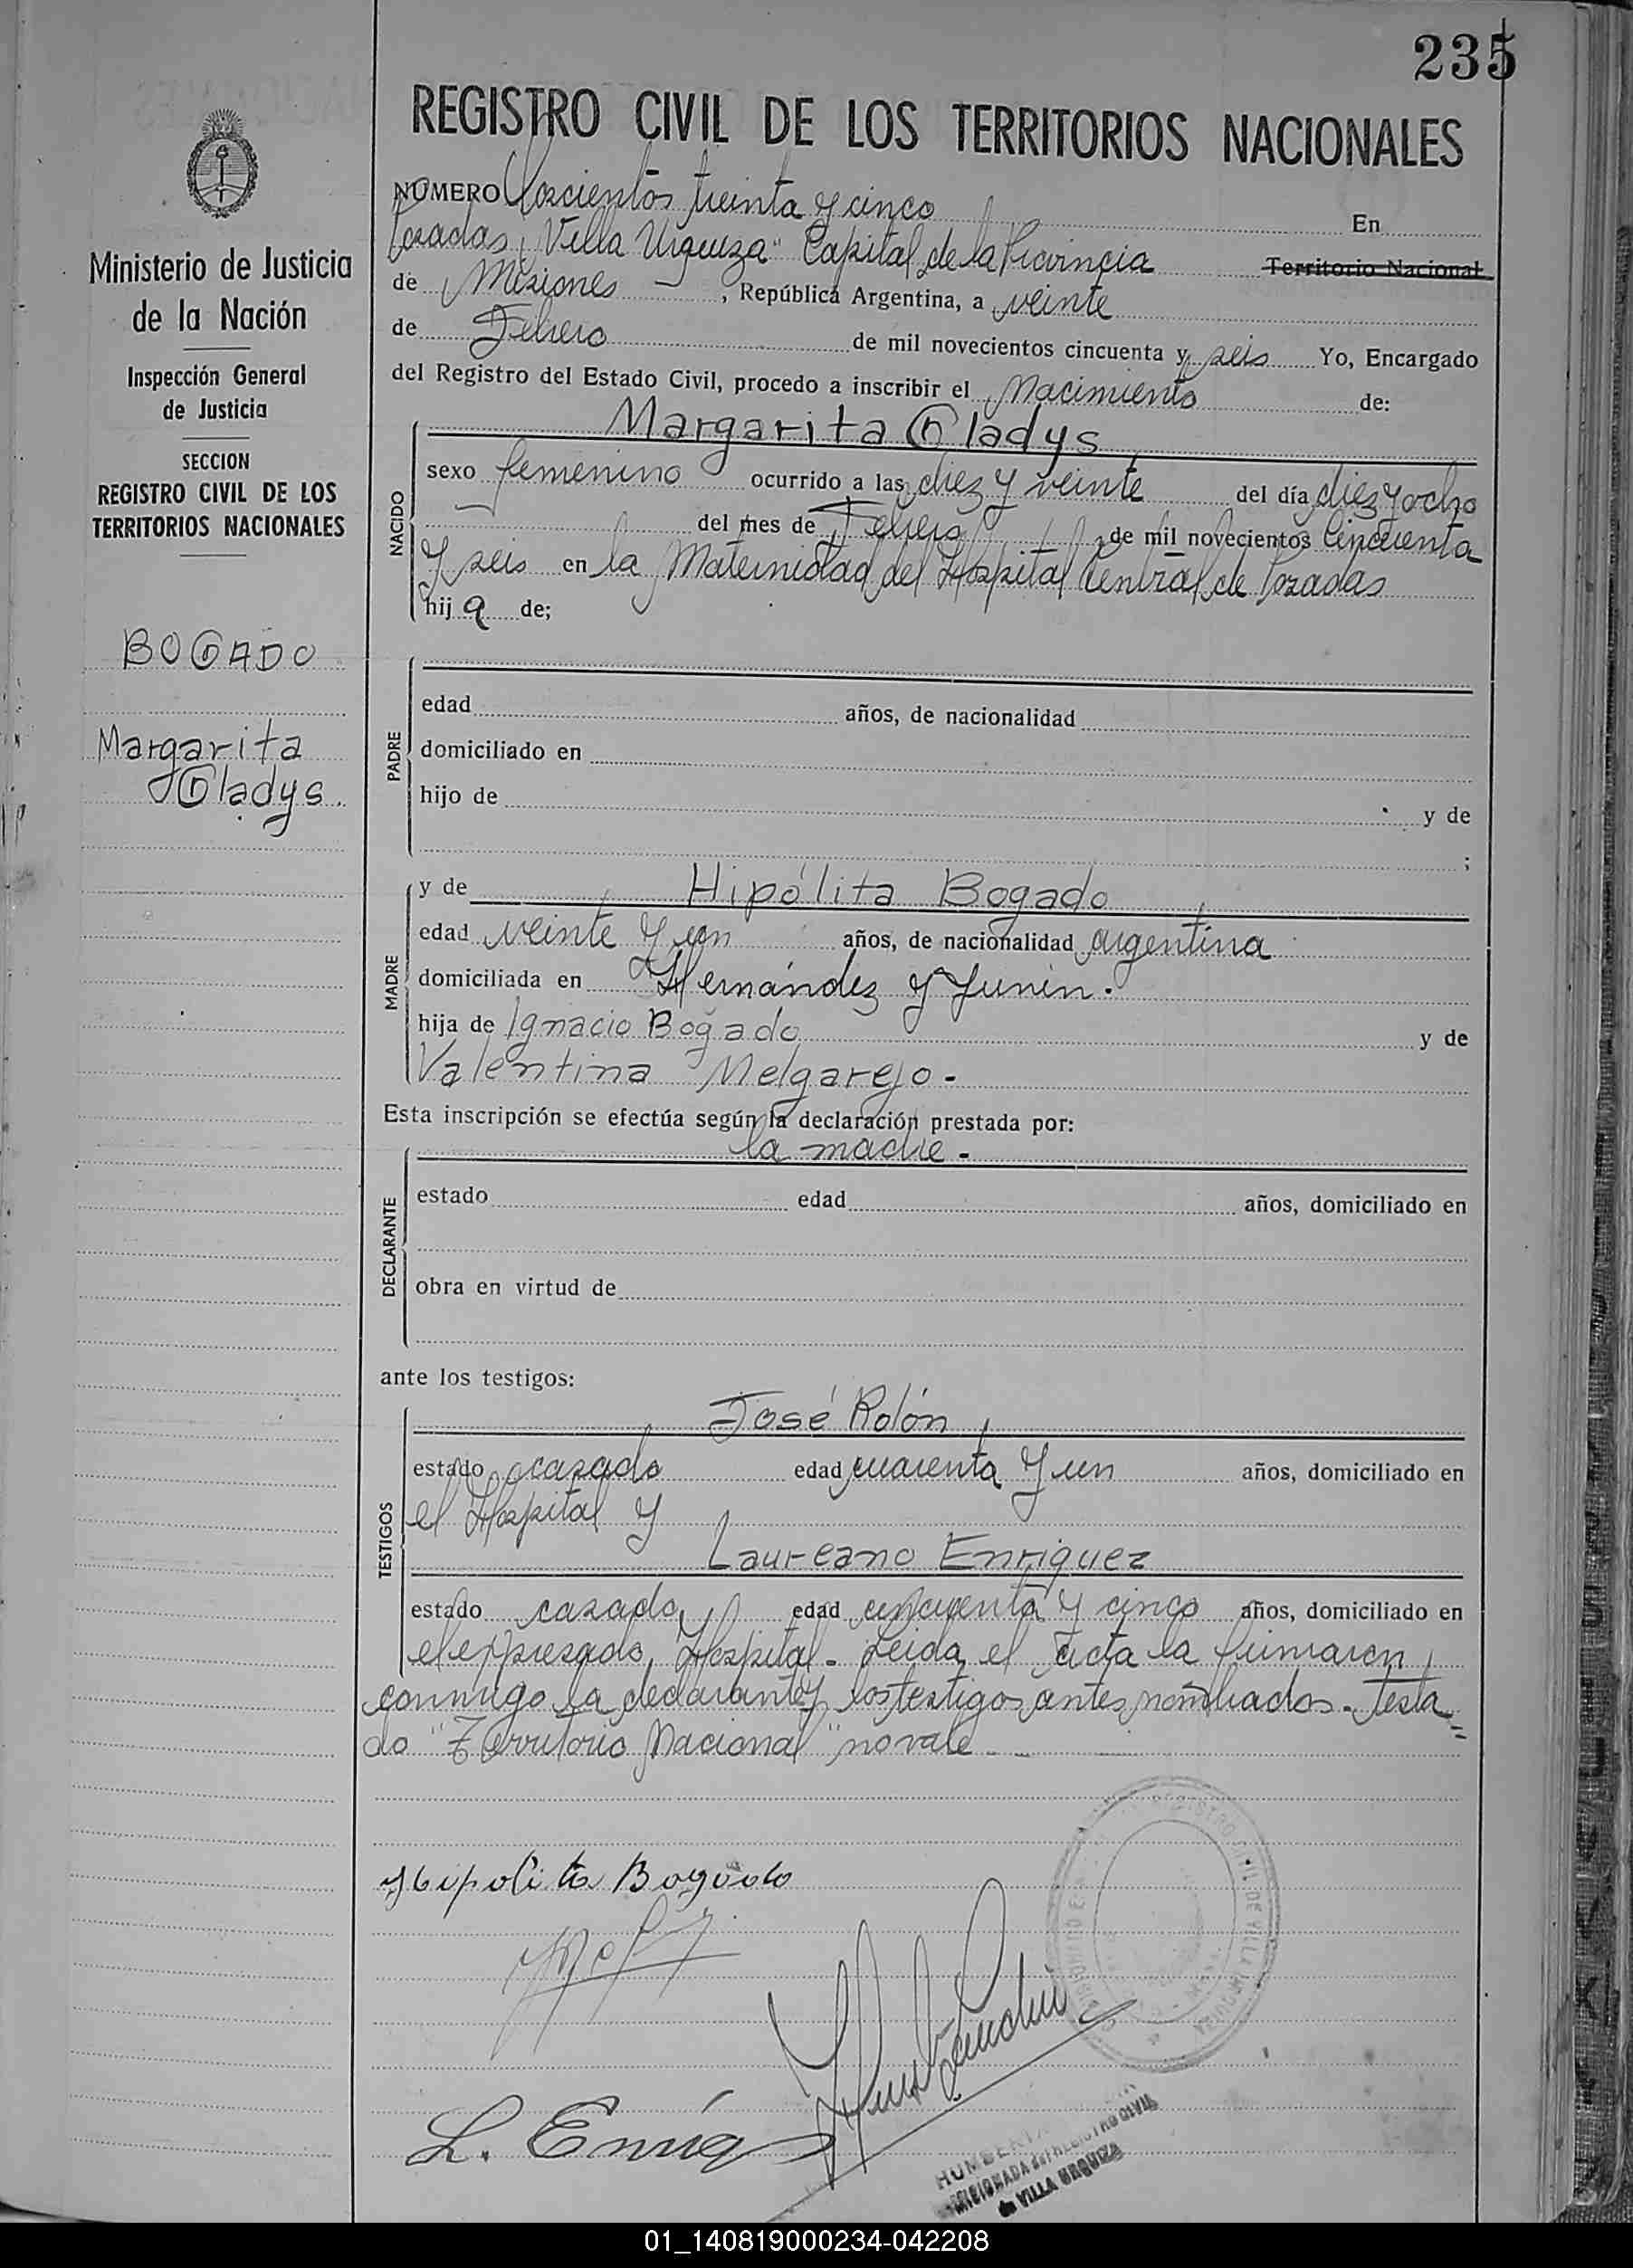 235
REGISTRO CIVIL DE LOS TERRITORIOS NACIONALES
Ministerio de Justicia
de la Nación
Inspección General
de Justicia
SECCION
REGISTRO CIVIL DE LOS
TERRITORIOS NACIONALES
BOGADO
Margarita
Gladys.
NUMERO Doscientos treinta y cinco En
Posadas, "Villa Urquiza" Capital de la Provincia Territorio Nacional
de Misiones, República Argentina, a veinte
de Febrero de mil novecientos cincuenta y seis Yo, Encargado
del Registro del Estado Civil, procedo a inscribir el Nacimiento de:
Margarita Gladys
NACIDO
sexo femenino ocurrido a las diez y veinte del día diez y ocho
del mes de Febrero de mil novecientos Cincuenta
y seis en la Maternidad del Hospital Central de Posadas
hija de;
PADRE
edad años, de nacionalidad
domiciliado en
hijo de y de
;
MADRE
y de Hipólita Bogado
edad veinte y un años, de nacionalidad argentina
domiciliada en Hernández y Junín.
hija de Ignacio Bogado y de
Valentina Melgarejo.-
Esta inscripción se efectúa según la declaración prestada por:
la madre.-
DECLARANTE
estado edad años, domiciliado en
obra en virtud de
ante los testigos:
TESTIGOS
José Rolón,
estado casado edad cuarenta y un años, domiciliado en
el Hospital y
Laureano Enriquez
estado casado, edad cincuenta y cinco años, domiciliado en
el expresado, Hospital.- Leida, el acta la firmaron,
conmigo la declarante y los testigos antes nombrados.- Testa=
do "Territorio Nacional" no vale
Hipolita Bogado
L. Enriq
REGISTRO CIVIL DE VILLA URQUIZA
REGISTRO CIVIL
de VILLA URQUIZA
01_140819000234-042208